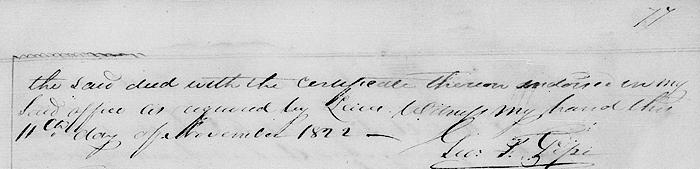 77
the said deed with the certificate thereon endorsed in my
said office as required by Law. Witness my hand this
11th day of November 1822 —
Geo: T.